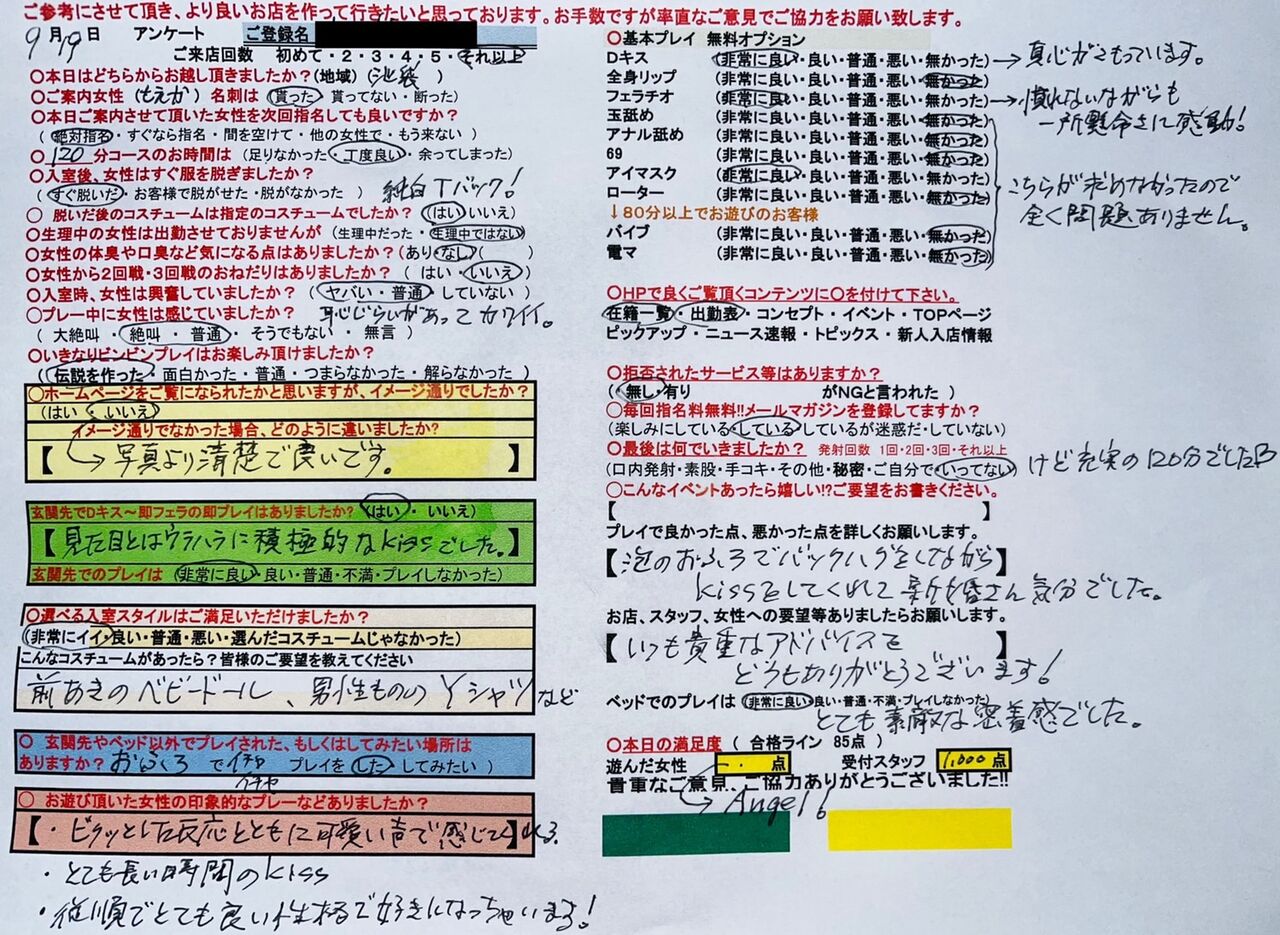 ご参考にさせて頂き、より良いお店を作って行きたいと思っております。お手数ですが率直なご意見でご協力をお願い致します。
9月19日 アンケート ご登録名
ご来店回数 初めて・2・3・4・5・それ以上
〇本日はどちらからお越し頂きましたか?(地域)(池袋)
〇ご案内女性(もえか)名刺は(貰った・貰ってない・断った)
〇本日ご案内させて頂いた女性を次回指名しても良いですか?
(絶対指名・すぐなら指名・間を空けて・他の女性で・もう来ない)
〇120分コースのお時間は(足りなかった・丁度良い・余ってしまった)
〇入室後、女性はすぐ服を脱ぎましたか?
(すぐ脱いだ・お客様で脱がせた・脱がなかった) 純白Tバック!
〇脱いだ後のコスチュームは指定のコスチュームでしたか?(はい・いいえ)
〇生理中の女性は出勤させておりませんが(生理中だった・生理中ではない)
〇女性の体臭や口臭など気になる点はありましたか?(あり・なし)( )
〇女性から2回戦・3回戦のおねだりはありましたか?(はい・いいえ)
〇入室時、女性は興奮していましたか?(ヤバい・普通・していない)
〇プレー中に女性は感じていましたか? 恥じらいがあってカワイイ。
(大絶叫・絶叫・普通・そうでもない・無言)
〇いきなりビンビンプレイはお楽しみ頂けましたか?
(伝説を作った・面白かった・普通・つまらなかった・解らなかった)
〇ホームページをご覧になられたかと思いますが、イメージ通りでしたか?
(はい・いいえ)
イメージ通りでなかった場合、どのように違いましたか?
【→写真より清楚で良いです。】
玄関先でDキス~即フェラの即プレイはありましたか?(はい・いいえ)
【見た目とはウラハラに積極的なkissでした。】
玄関先でのプレイは(非常に良い・良い・普通・不満・プレイしなかった)
〇選べる入室スタイルはご満足いただけましたか?
(非常にイイ・良い・普通・悪い・選んだコスチュームじゃなかった)
こんなコスチュームがあったら?皆様のご要望を教えてください
前あきのベビードール、男性もののYシャツなど
〇玄関先やベッド以外でプレイされた、もしくはしてみたい場所は
ありますか?おふろでイチャイチャプレイを(した・してみたい)
〇お遊び頂いた女性の印象的なプレーなどありましたか?
【・ビクッとした反応とともに可愛い声で感じてくれる】
・とても長い時間のkiss
・従順でとても良い性格で好きになっちゃいます!
〇基本プレイ 無料オプション
Dキス (非常に良い・良い・普通・悪い・無かった)→真心がこもっています。
全身リップ (非常に良い・良い・普通・悪い・無かった)
フェラチオ (非常に良い・良い・普通・悪い・無かった)→慣れないながらも
一所懸命さに感動!
玉舐め (非常に良い・良い・普通・悪い・無かった)
アナル舐め (非常に良い・良い・普通・悪い・無かった)
69 (非常に良い・良い・普通・悪い・無かった)
アイマスク (非常に良い・良い・普通・悪い・無かった)
ローター (非常に良い・良い・普通・悪い・無かった)
こちらが求めなかったので
全く問題ありません。
↓80分以上でお遊びのお客様
バイブ (非常に良い・良い・普通・悪い・無かった)
電マ (非常に良い・良い・普通・悪い・無かった)
〇HPで良くご覧頂くコンテンツに〇を付けて下さい。
在籍一覧・出勤表・コンセプト・イベント・TOPページ
ピックアップ・ニュース速報・トピックス・新人入店情報
〇拒否されたサービス等はありますか?
(無し・有り がNGと言われた)
〇毎回指名料無料!!メールマガジンを登録してますか?
(楽しみにしている・している・しているが迷惑だ・していない)
〇最後は何でいきましたか? 発射回数 1回・2回・3回・それ以上
(口内発射・素股・手コキ・その他・秘密・ご自分で・いってない)けど充実の120分でした
〇こんなイベントあったら嬉しい!?ご要望をお書きください。
【 】
プレイで良かった点、悪かった点を詳しくお願いします。
【泡のおふろでバックハグをしながら
kissをしてくれて新婚さん気分でした。】
お店、スタッフ、女性への要望等ありましたらお願いします。
【いつも貴重なアドバイスを
どうもありがとうございます!】
ベッドでのプレイは(非常に良い・良い・普通・不満・プレイしなかった)
とても素敵な密着感でした。
〇本日の満足度(合格ライン 85点)
遊んだ女性 点 受付スタッフ 1,000点
貴重なご意見、ご協力ありがとうございました!!
→Angel!